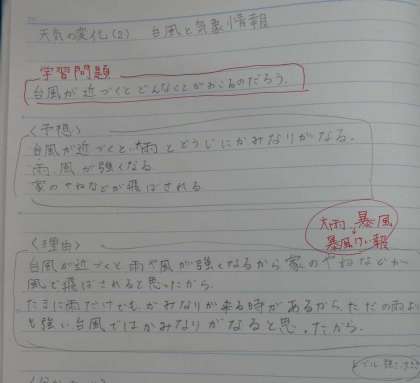 天気の変化(2) 台風と気象情報
学習問題
台風が近づくとどんなことがおこるのだろう。
〈予想〉
台風が近づくと大雨とどうじにかみなりがなる。
雨風が強くなる
家のやねなどが飛ばされる
大雨、暴風
暴風けい報
〈理由〉
台風が近づくと雨や風が強くなるから家のやねなどが
風で飛ばされると思ったから。
たまに雨だけでも、かみなりが来る時があるから、ただの雨よ
も強い台風ではかみなりがなると思ったから。